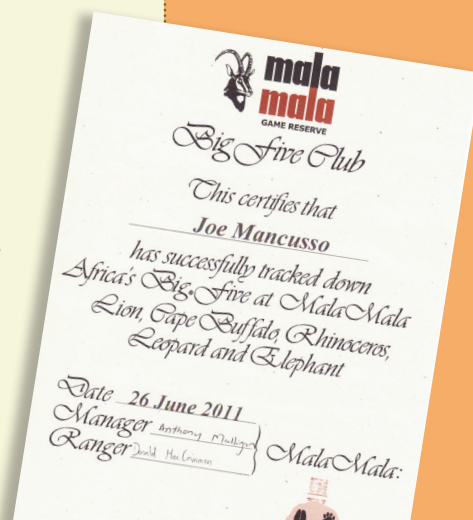 mala
mala
GAME RESERVE
Big Five Club
This certifies that
Joe Mancusso
has successfully tracked down
Africa's Big Five at MalaMala
Lion, Cape Buffalo, Rhinoceros,
Leopard and Elephant
Date 26 June 2011
Manager Anthony Mulligan
Ranger Donald MacCrimmon
MalaMala: